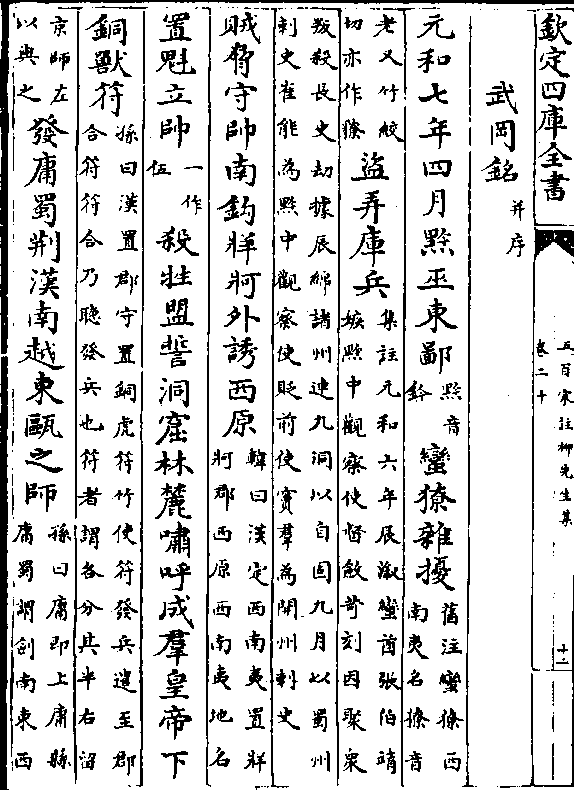 欽定四庫全書
五百家註柳先生集
卷二十
十二
武岡銘并序
元和七年四月黔巫東鄙黔音鈐蠻獠雜擾舊注蠻獠西南夷名獠音
老又竹絞切亦作獠盜弄庫兵集註元和六年辰溆蠻酋張伯靖嫉黔中觀察使督斂苛刻因聚衆
叛殺長史劫據辰綿諸州連九洞以自固九月以蜀州刺史崔能為黔中觀察使貶前使竇羣為開州刺史
賊脅守帥南鉤牂牁外誘西原韓曰漢定西南夷置牂牁郡西原西南夷地名
置魁立帥一作伍殺牲盟誓洞窟林麓嘯呼成羣皇帝下
銅獸符孫曰漢置郡守置銅虎符竹使符發兵遣至郡合符符合乃聽發兵也符者謂各分其半右留
京師左以與之發庸蜀荆漢南越東甌之師孫曰庸即上庸縣庸蜀謂劍南東西